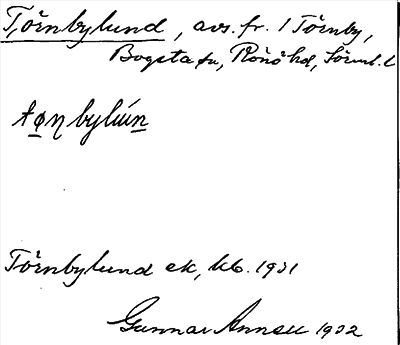 Törnbylund, avs. fr. 1 Törnby,
Bogsta sn, Rönö hd, Sörml. l
tøŋbylún
Törnbylund ek, kb. 1931
Gunnar Annell 1932